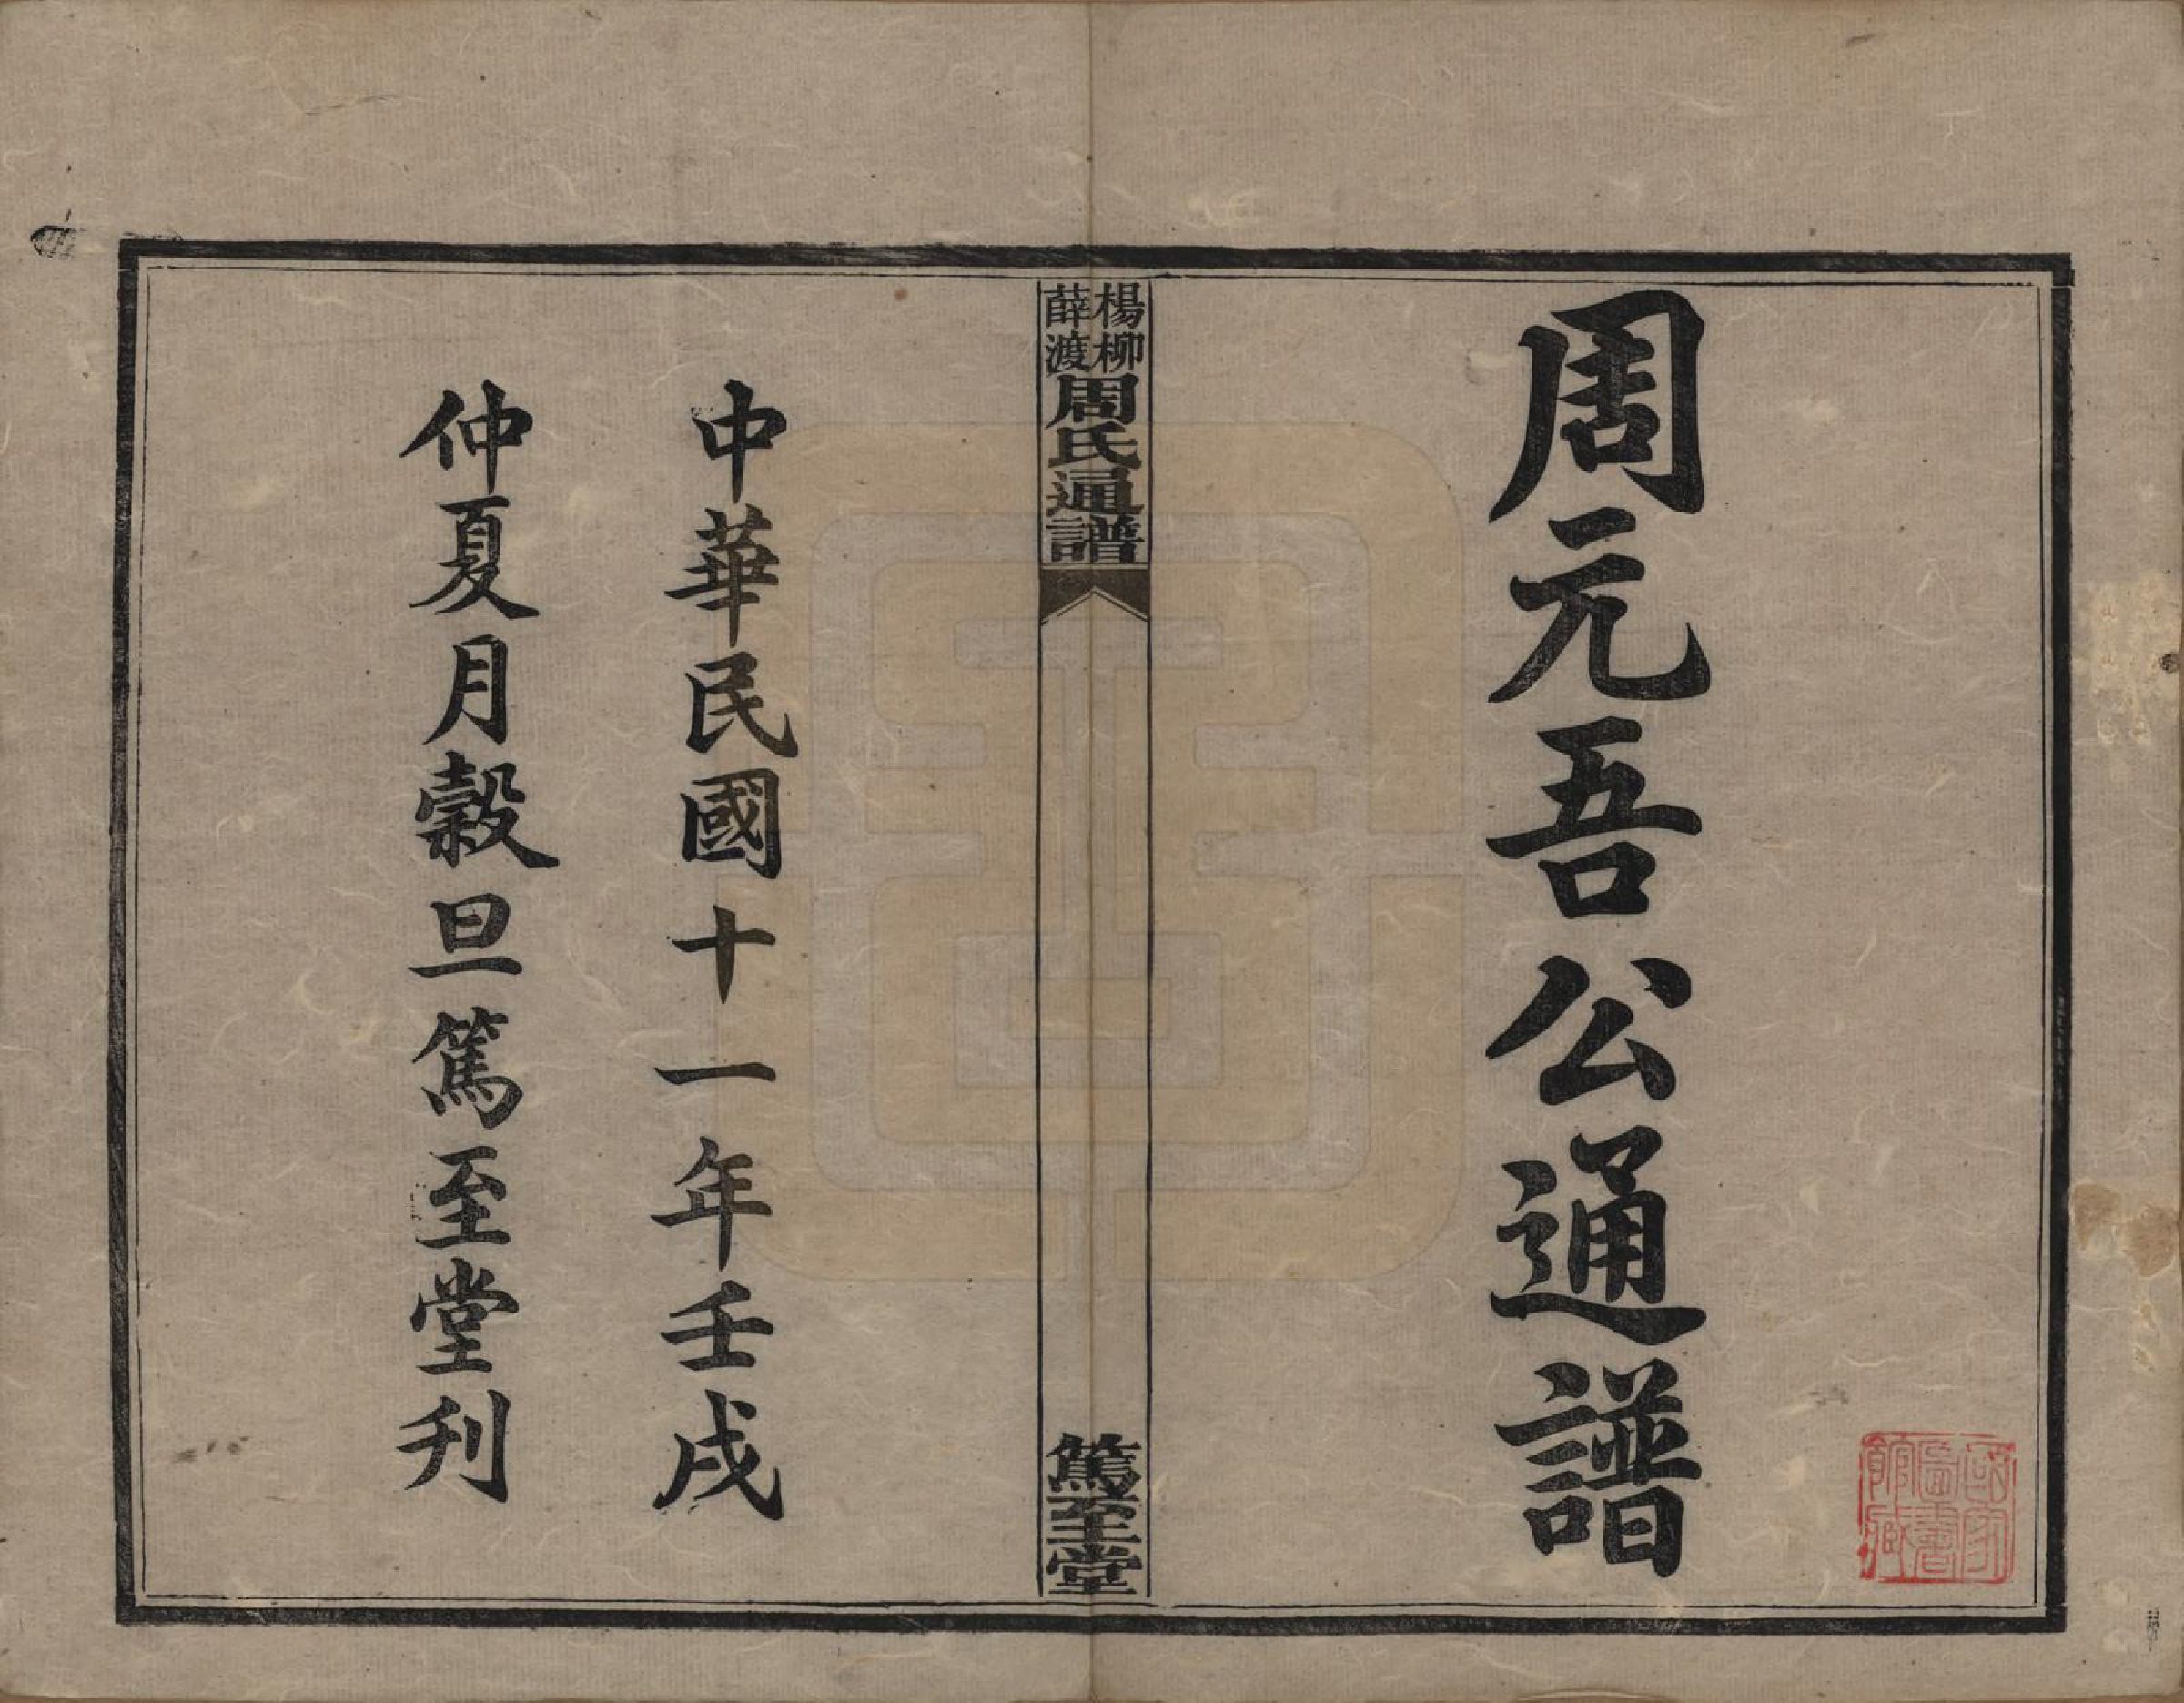 周元吾公通譜
楊柳
薛渡
周氏通譜
篤至堂
中華民國十一年壬戌
仲夏月穀旦篤至堂刋
國家
圖書
館藏